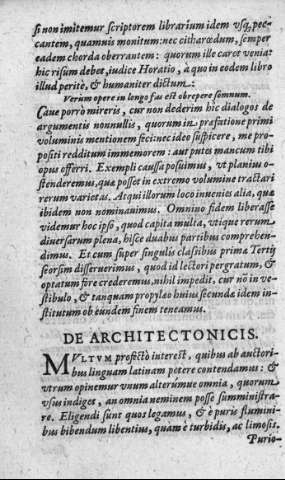 si non imitemur scriptorem librarium idem usq; pec-
cantem, quamuis monitum: nec citharœdum, semper
eadem chorda oberrantem: quorum ille caret venia:
hic risum debet, iudice Horatio, a quo in eodem libro
illud perite, & humaniter dictum:
Verum opere in longo fas est obrepere somnum.
Caue porrò mireris, cur non dederim hic dialogos de
argumentis nonnullis, quorum in præfatione primi
voluminis mentionem feci: nec ideo suspicere, me pro-
positi redditum immemorem: aut putes mancum tibi
opus offerri. Exempli caussa posuimus, vt planius o-
stenderemus, quæ posset in extremo volumine tractari
rerum varietas. Atqui illorum loco inuenies alia, quæ
ibidem non nominauimus. Omnino fidem liberasse
videmur hoc ipso, quod capita multa, vtique rerum
diuersarum plena, hisce duabus partibus comprehen-
dimus. Et cum super singulis classibus primæ Tertij
seorsim disseruerimus, quod id lectori pergratum, &
optatum fore crederemus, nihil impedit, cur nõ in ve-
stibulo, & tanquam propylæo huius secundæ idem in-
stitutum ob eundem finem teneamus.
DE ARCHITECTONICIS.
MVLTVM profectò interest, quibus ab auctori-
bus linguam latinam petere contendamus: &
vtrum opinemur vnum alterumue omnia, quorum
vsus indiges, an omnia neminem posse sumministra-
re. Eligendi sunt quos legamus, & è puris flumini-
bus bibendum libentius, quàm è turbidis, ac limosis.
Purio-